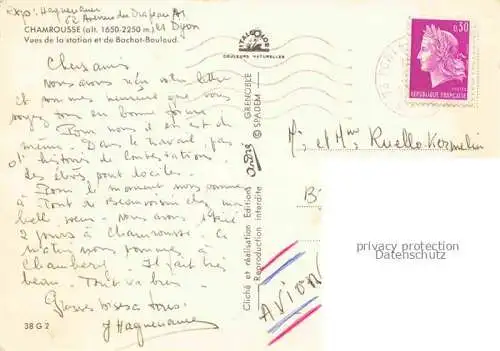 Exp: Haguenauer
62 Avenue du Drapeau A1
21 Dijon
CHAMROUSSE (alt. 1650-2250 m.)
Vues de la station et de Bachat-Bouloud.
ITALCOLOR
COULEURS NATURELLES
0,30
POSTES
REPUBLIQUE FRANÇAISE
Chers amis
nous avons reçu votre lettre
et sommes heureux que vous
soyez tous en bonne forme.
Pour nous il en est de
même. Dans le travail, pas
d'histoires de contestations.
des élèves dociles.
Pour le moment nous sommes
à Pont de Beauvoisin chez ma
belle soeur. nous avons
2 jours à Chamrousse. Ce
matin nous sommes à
Chambéry. Il fait très
beau. Tout va bien.
Grosses bises à tous.
Haguenauer
38 G 2
GRENOBLE
© SPADEM
André
Cliché et réalisation Editions
Reproduction interdite
M. et Mme Ruello-Kermelin
AVION
privacy protection
Datenschutz